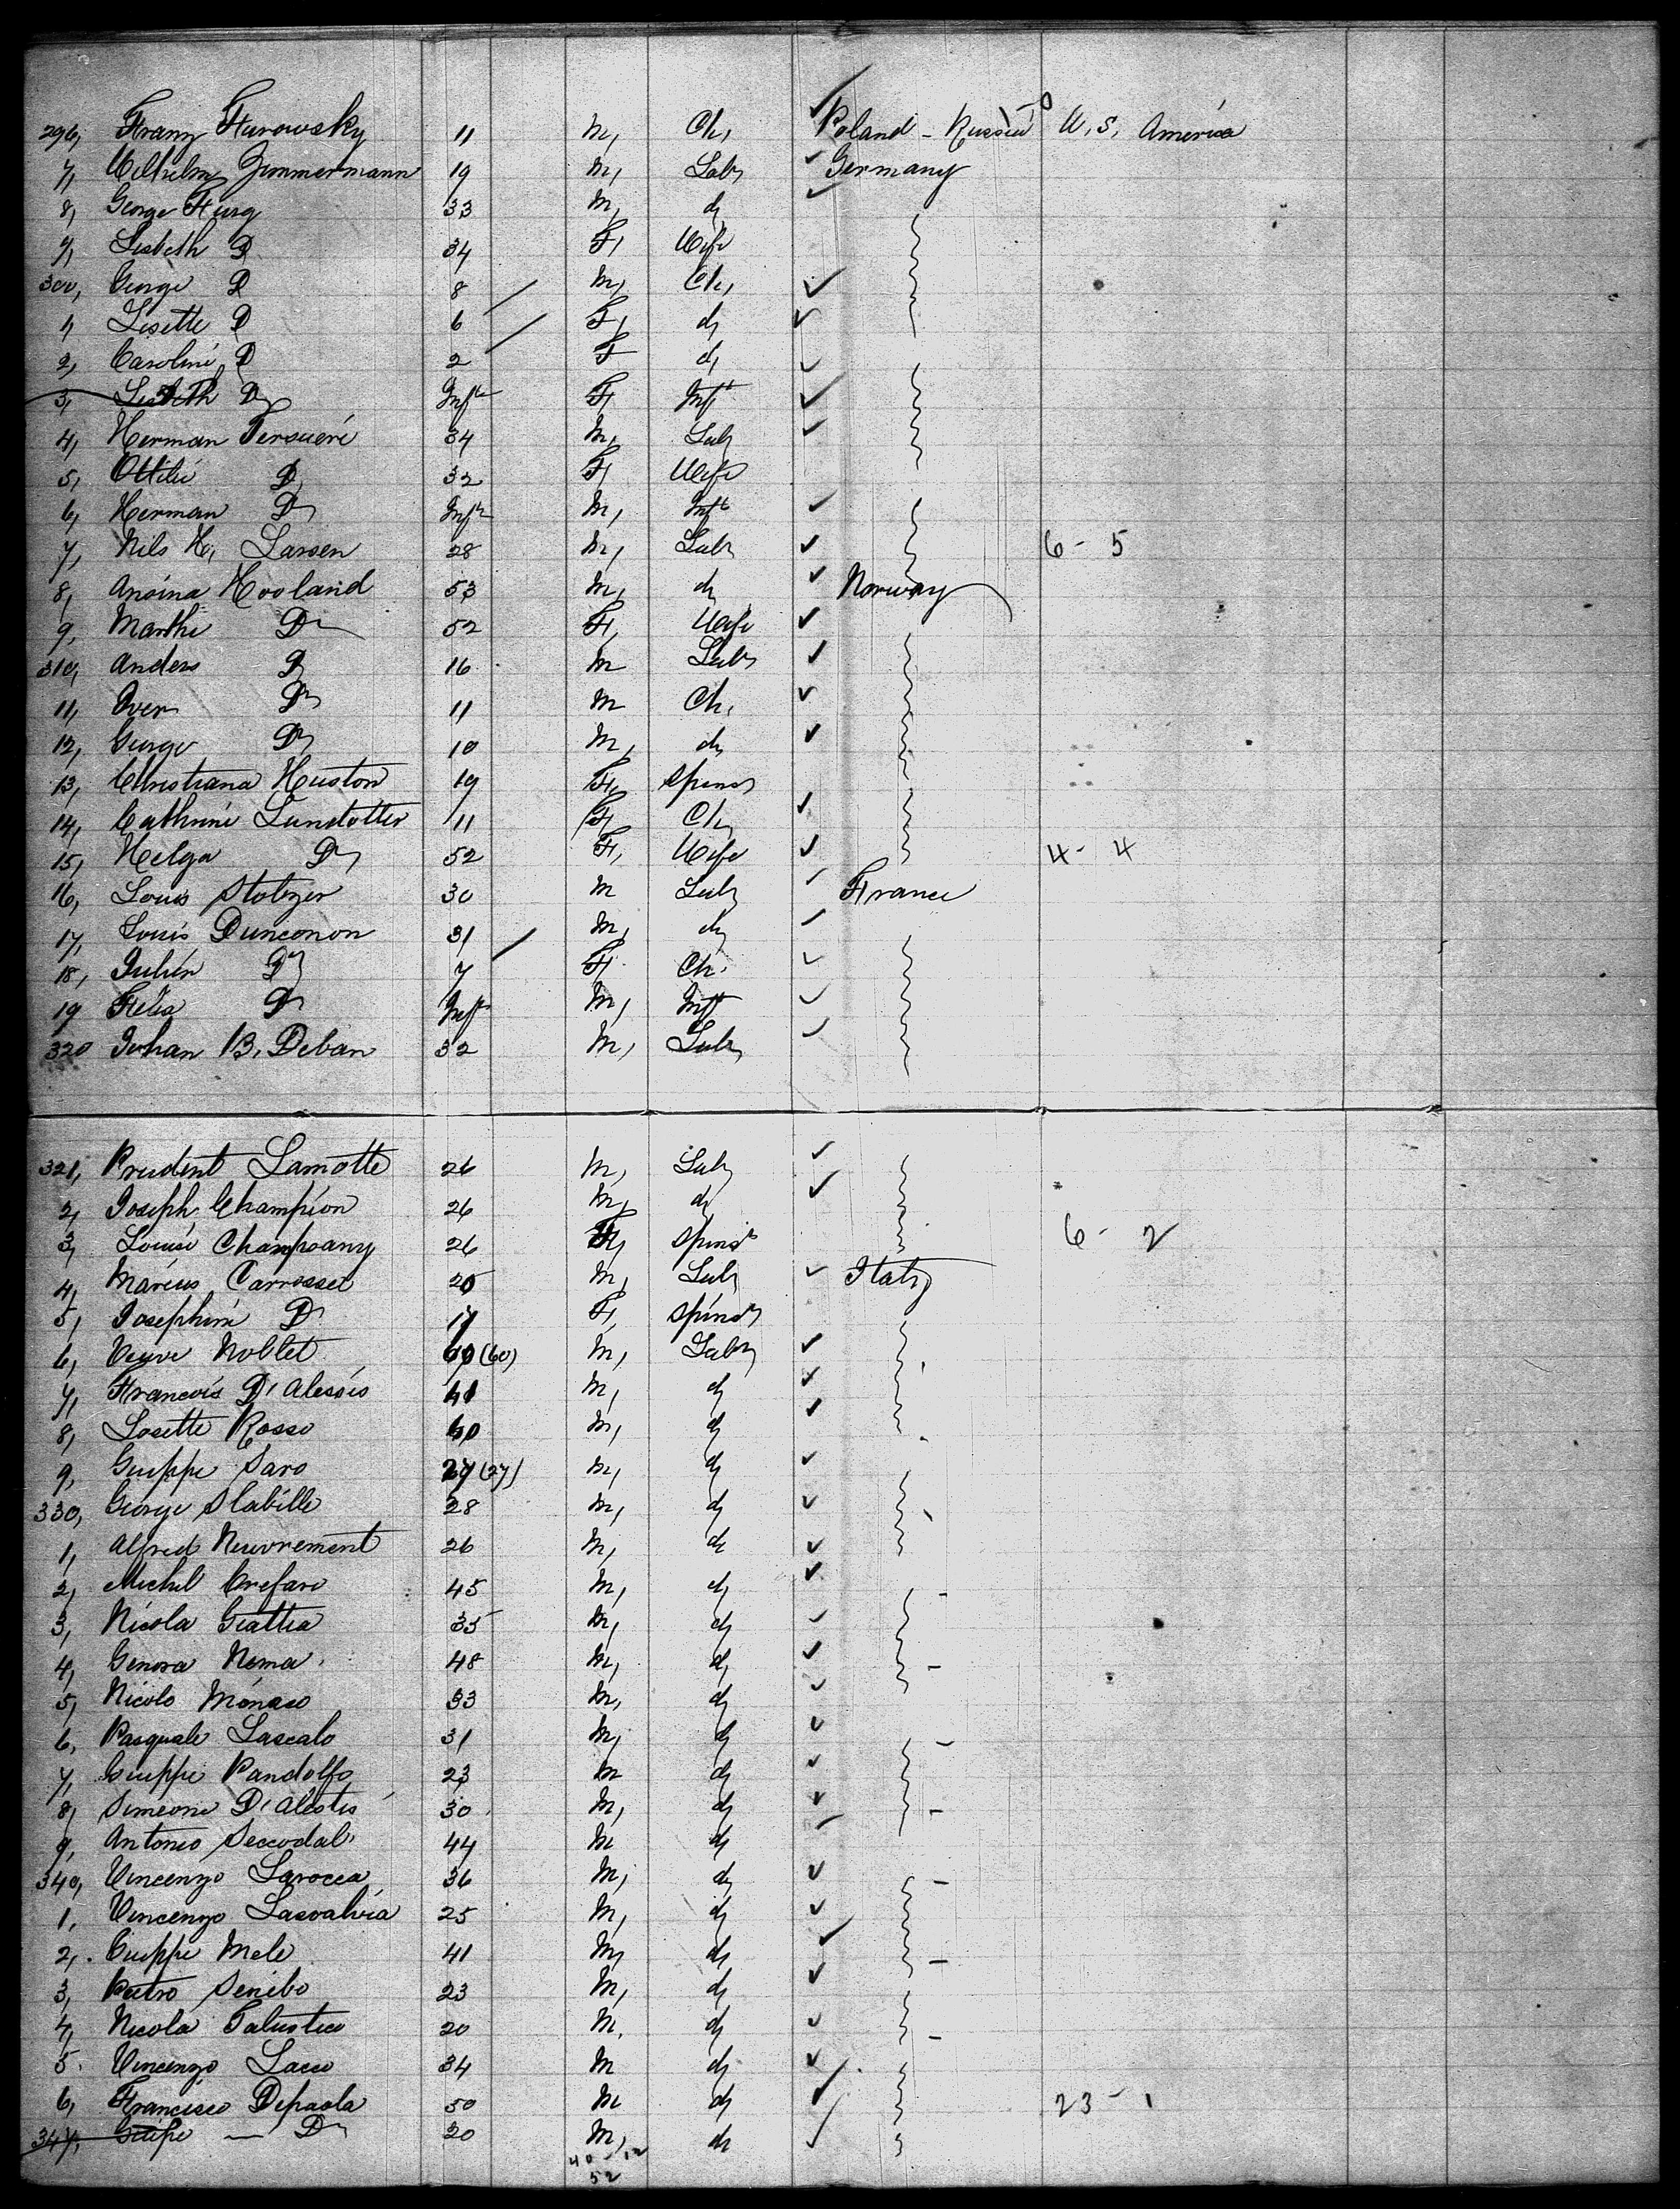 296, Franz Furowsky 11 M, Ch, Poland - Russia U, S, America
7, Wilhelm Zimmermann 19 M, Labr Germany
8, George Furg 33 M, do
9, Lisbeth Do 34 F, Wife
300, George Do 8 M, Ch,
1, Lisette Do 6 F, do
2, Caroline Do 2 F do
3, Lisbeth Do Inft F, Inft
4, Herman Tersueri 34 M, Labr
5, Ottilie Do 32 F, Wife
6, Herman Do Inft M, Inft
7, Nils H, Larsen 28 M, Labr 6 - 5
8, Ansina Hooland 53 M, do Norway
9, Marthe Do 52 F, Wife
310, Anders Do 16 M Labr
11, Over Do 11 M Ch,
12, George Do 10 M, do
13, Christiana Huston 19 F, Spinsr
14, Cathrine Lundotter 11 F, Ch,
15, Helga Do 52 F, Wife 4 - 4
16, Louis Stotzer 30 M Labr France
17, Louis Dunconon 31 M, do
18, Julien Do 7 F Ch.
19 Felix Do Inft M, Inft
320 Johan B, Deban 32 M, Labr
321, Prudent Lamotte 26 M, Labr
2, Joseph Champion 26 M, do
3, Louise Champoany 26 F, Spinsr 6 - 2
4, Marius Carrossa 25 M, Labr Italy
5, Josephine Do 17 F, Spinsr
6, Veuve Noblet 60 (60) M, Labr
7, Francois D'Alessis 41 M, do
8, Losette Rosso 40 M, do
9, Guippe Saro 27 (27) M, do
330, George Slabille 28 M, do
1, Alfred Neuvrement 26 M, do
2, Michel Crefaro 45 M, do
3, Nicola Giattia 35 M, do
4, Genora Noma 48 M, do
5, Nicolo Monaco 33 M, do
6, Pasquale Lascalo 31 M, do
7, Guippe Pandolfo 23 M do
8, Simeone D'Alestis 30 M, do
9, Antonio Seccodal 44 M do
340, Vincenzo Larocca 36 M, do
1, Vincenzo Lasvalvia 25 M, do
2, Guippe Mele 41 M, do
3, Pietro Senibo 23 M, do
4, Nicola Talustico 20 M, do
5. Vincenzo Lacco 34 M do
6, Francisco Depaola 50 M do 23 - 1
347, Guipe — Do 20 M, do
40 - 12
52